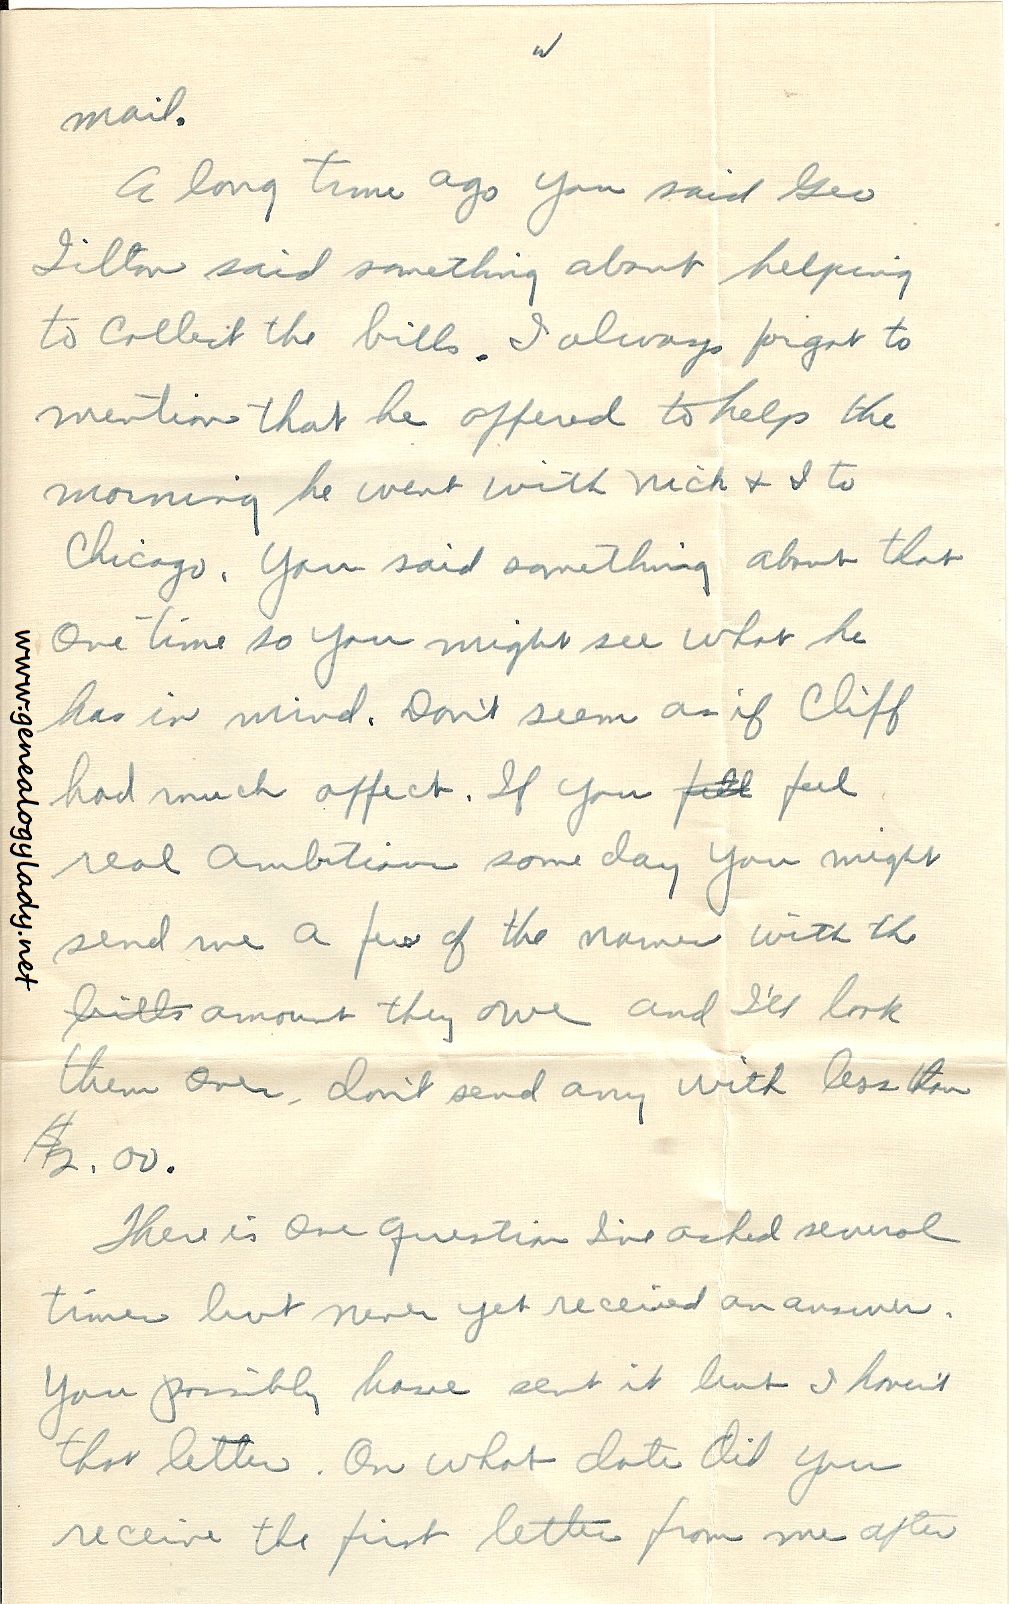 mail.
A long time ago you said Geo
Tilton said something about helping
to collect the bills. I always forgot to
mention that he offered to help the
morning he went with Nick + I to
Chicago. You said something about that
one time so you might see what he
has in mind. Don't seem as if Cliff
had much affect. If you fell feel
real ambition some day you might
send me a few of the names with the
bills amount they owe and I'll look
them over, don't send any with less than
$2.00.
There is one question I've asked several
times but never yet received an answer.
You possibly have sent it but I haven't
that letter. On what date did you
receive the first letter from me after
www.genealogylady.net